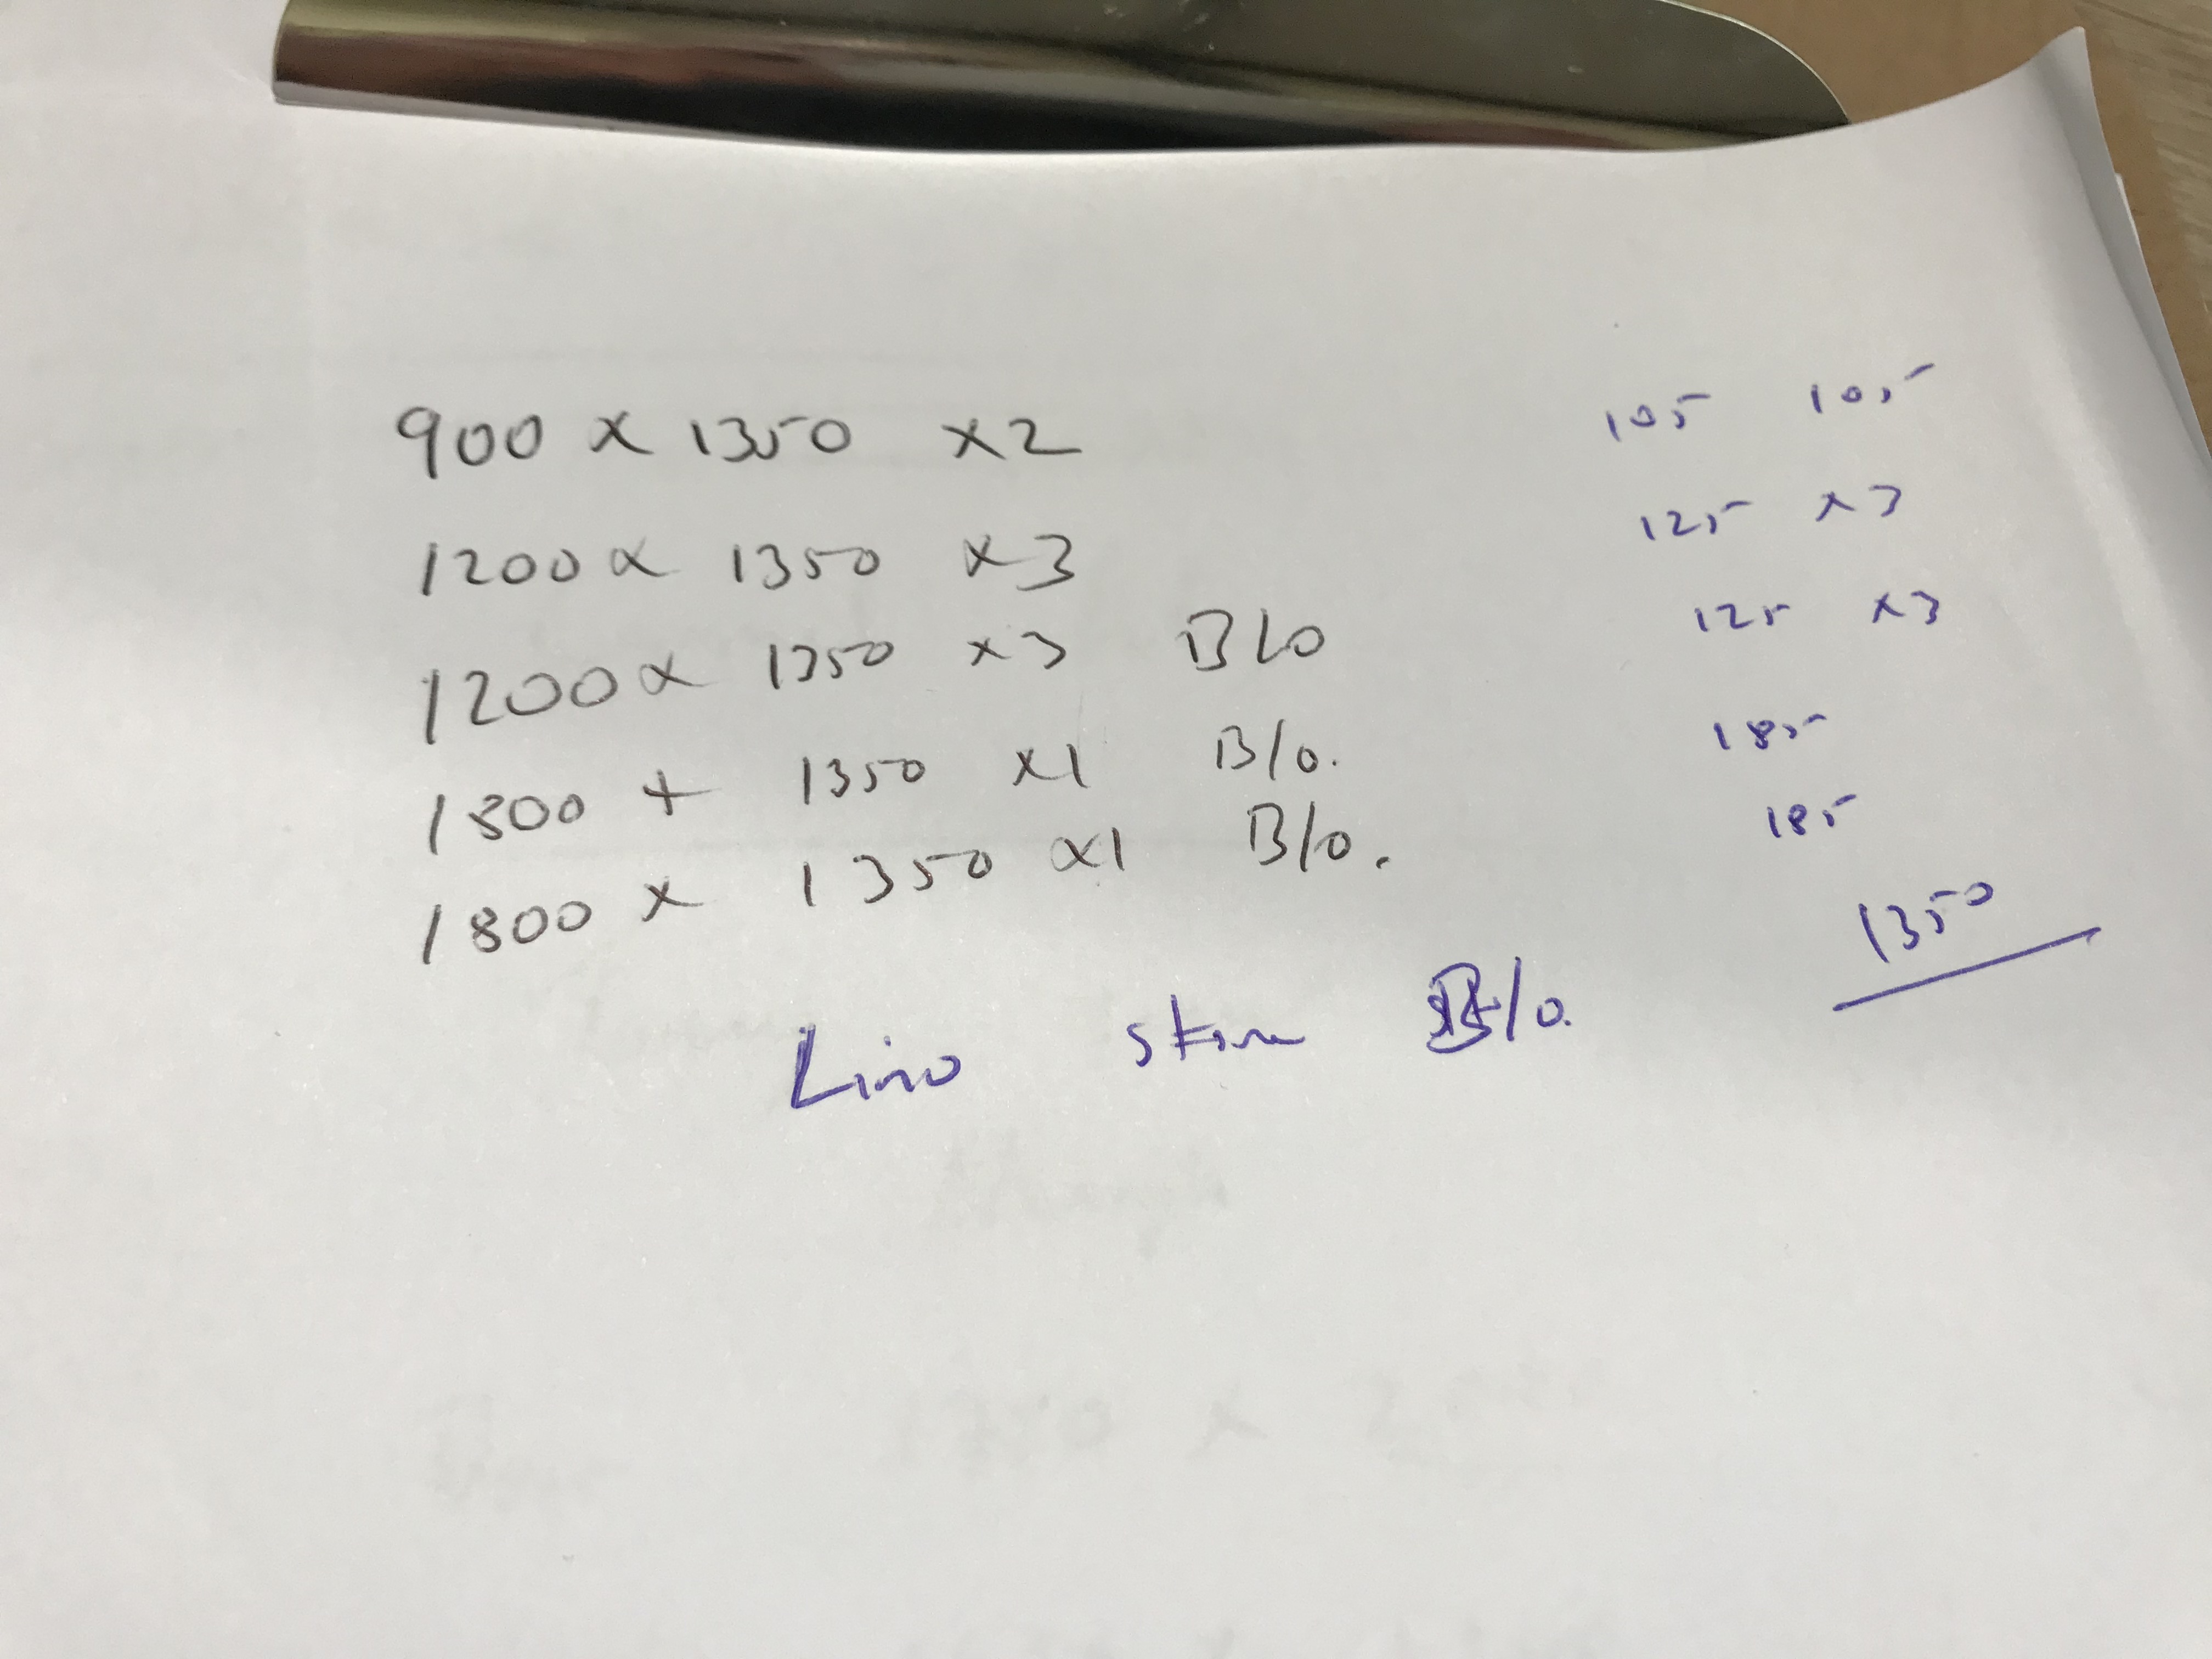 900 x 1350 x2 105 105
1200 x 1350 x3 125 x3
1200 x 1350 x3 B/O 125 x3
1800 x 1350 x1 B/O. 185
1800 x 1350 x1 B/O. 185
1350
Lino stone B/O.